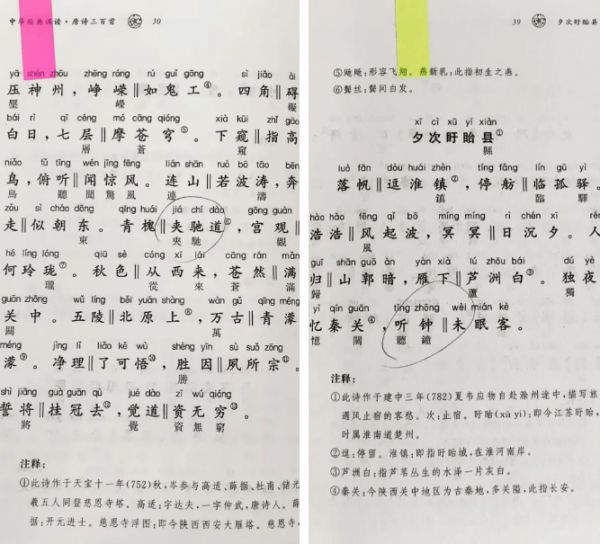 中华经典诵读·唐诗三百首 30
yā shén zhōu zhēng róng rú guǐ gōng sì jiǎo ài
压神州，峥嵘‖如鬼工④。四角‖碍
壓 崢 嶸 礙
bái rì qī céng mó cāng qióng xià kuī zhǐ gāo
白日，七层‖摩苍穹⑤。下窥‖指高
層 蒼 窺
niǎo fǔ tīng wén jīng fēng lián shān ruò bō tāo bēn
鸟，俯听‖闻惊风。连山‖若波涛，奔
鳥 聽 聞 驚 風 連 濤
zǒu sì cháo dōng qīng huái jiá chí dào gōng guàn
走‖似朝东。青槐‖夹驰道⑥，宫观‖
東 夾 馳 觀
hé líng lóng qiū sè cóng xī lái cāng rán mǎn
何玲珑⑦。秋色‖从西来，苍然‖满
瓏 從 來 蒼 滿
guān zhōng wǔ líng běi yuán shàng wàn gǔ qīng méng
关中。五陵‖北原上⑧，万古‖青濛
關 萬
méng jìng lǐ liǎo kě wù shèng yīn sù suǒ zōng
濛⑨。净理‖了可悟⑩，胜因‖夙所宗⑪。
勝
shì jiāng guà guān qù jué dào zī wú qióng
誓将‖挂冠去⑫，觉道‖资无穷⑬。
將 覺 資 無 窮
注释：
①此诗作于天宝十一年(752)秋，岑参与高适、薛据、杜甫、储光
羲五人同登慈恩寺塔。高适：字达夫，一字仲武，唐诗人。薛
据：开元进士。慈恩寺浮图：即今陕西西安大雁塔。慈恩寺，
39 夕次盱眙县
⑤飏飏：形容飞翔。燕新乳：此指初生之燕。
⑥鬓丝：鬓间白发。
xī cì xū yí xiàn
夕次盱眙县①
縣
luò fān dòu huái zhèn tíng fǎng lín gū yì
落帆‖逗淮镇②，停舫‖临孤驿。
鎮 臨 驛
hào hào fēng qǐ bō míng míng rì chén xī rén
浩浩‖风起波，冥冥‖日沉夕。人
風
guī shān guō àn yàn xià lú zhōu bái dú yè
归‖山郭暗，雁下‖芦洲白③。独夜‖
歸 蘆 獨
yì qín guān tīng zhōng wèi mián kè
忆秦关④，听钟‖未眠客。
憶 關 聽 鐘
注释：
①此诗作于建中三年(782)夏韦应物自赴滁州途中，描写旅
遇风止宿的客愁。次：止宿。盱眙(xū yí)：即今江苏盱眙，
时属淮南道楚州。
②逗：停留。淮镇：即指盱眙城，在淮河南岸。
③芦洲白：指芦苇丛生的水泽一片灰白。
④秦关：今陕西关中地区为古秦地，多关隘，此指长安。